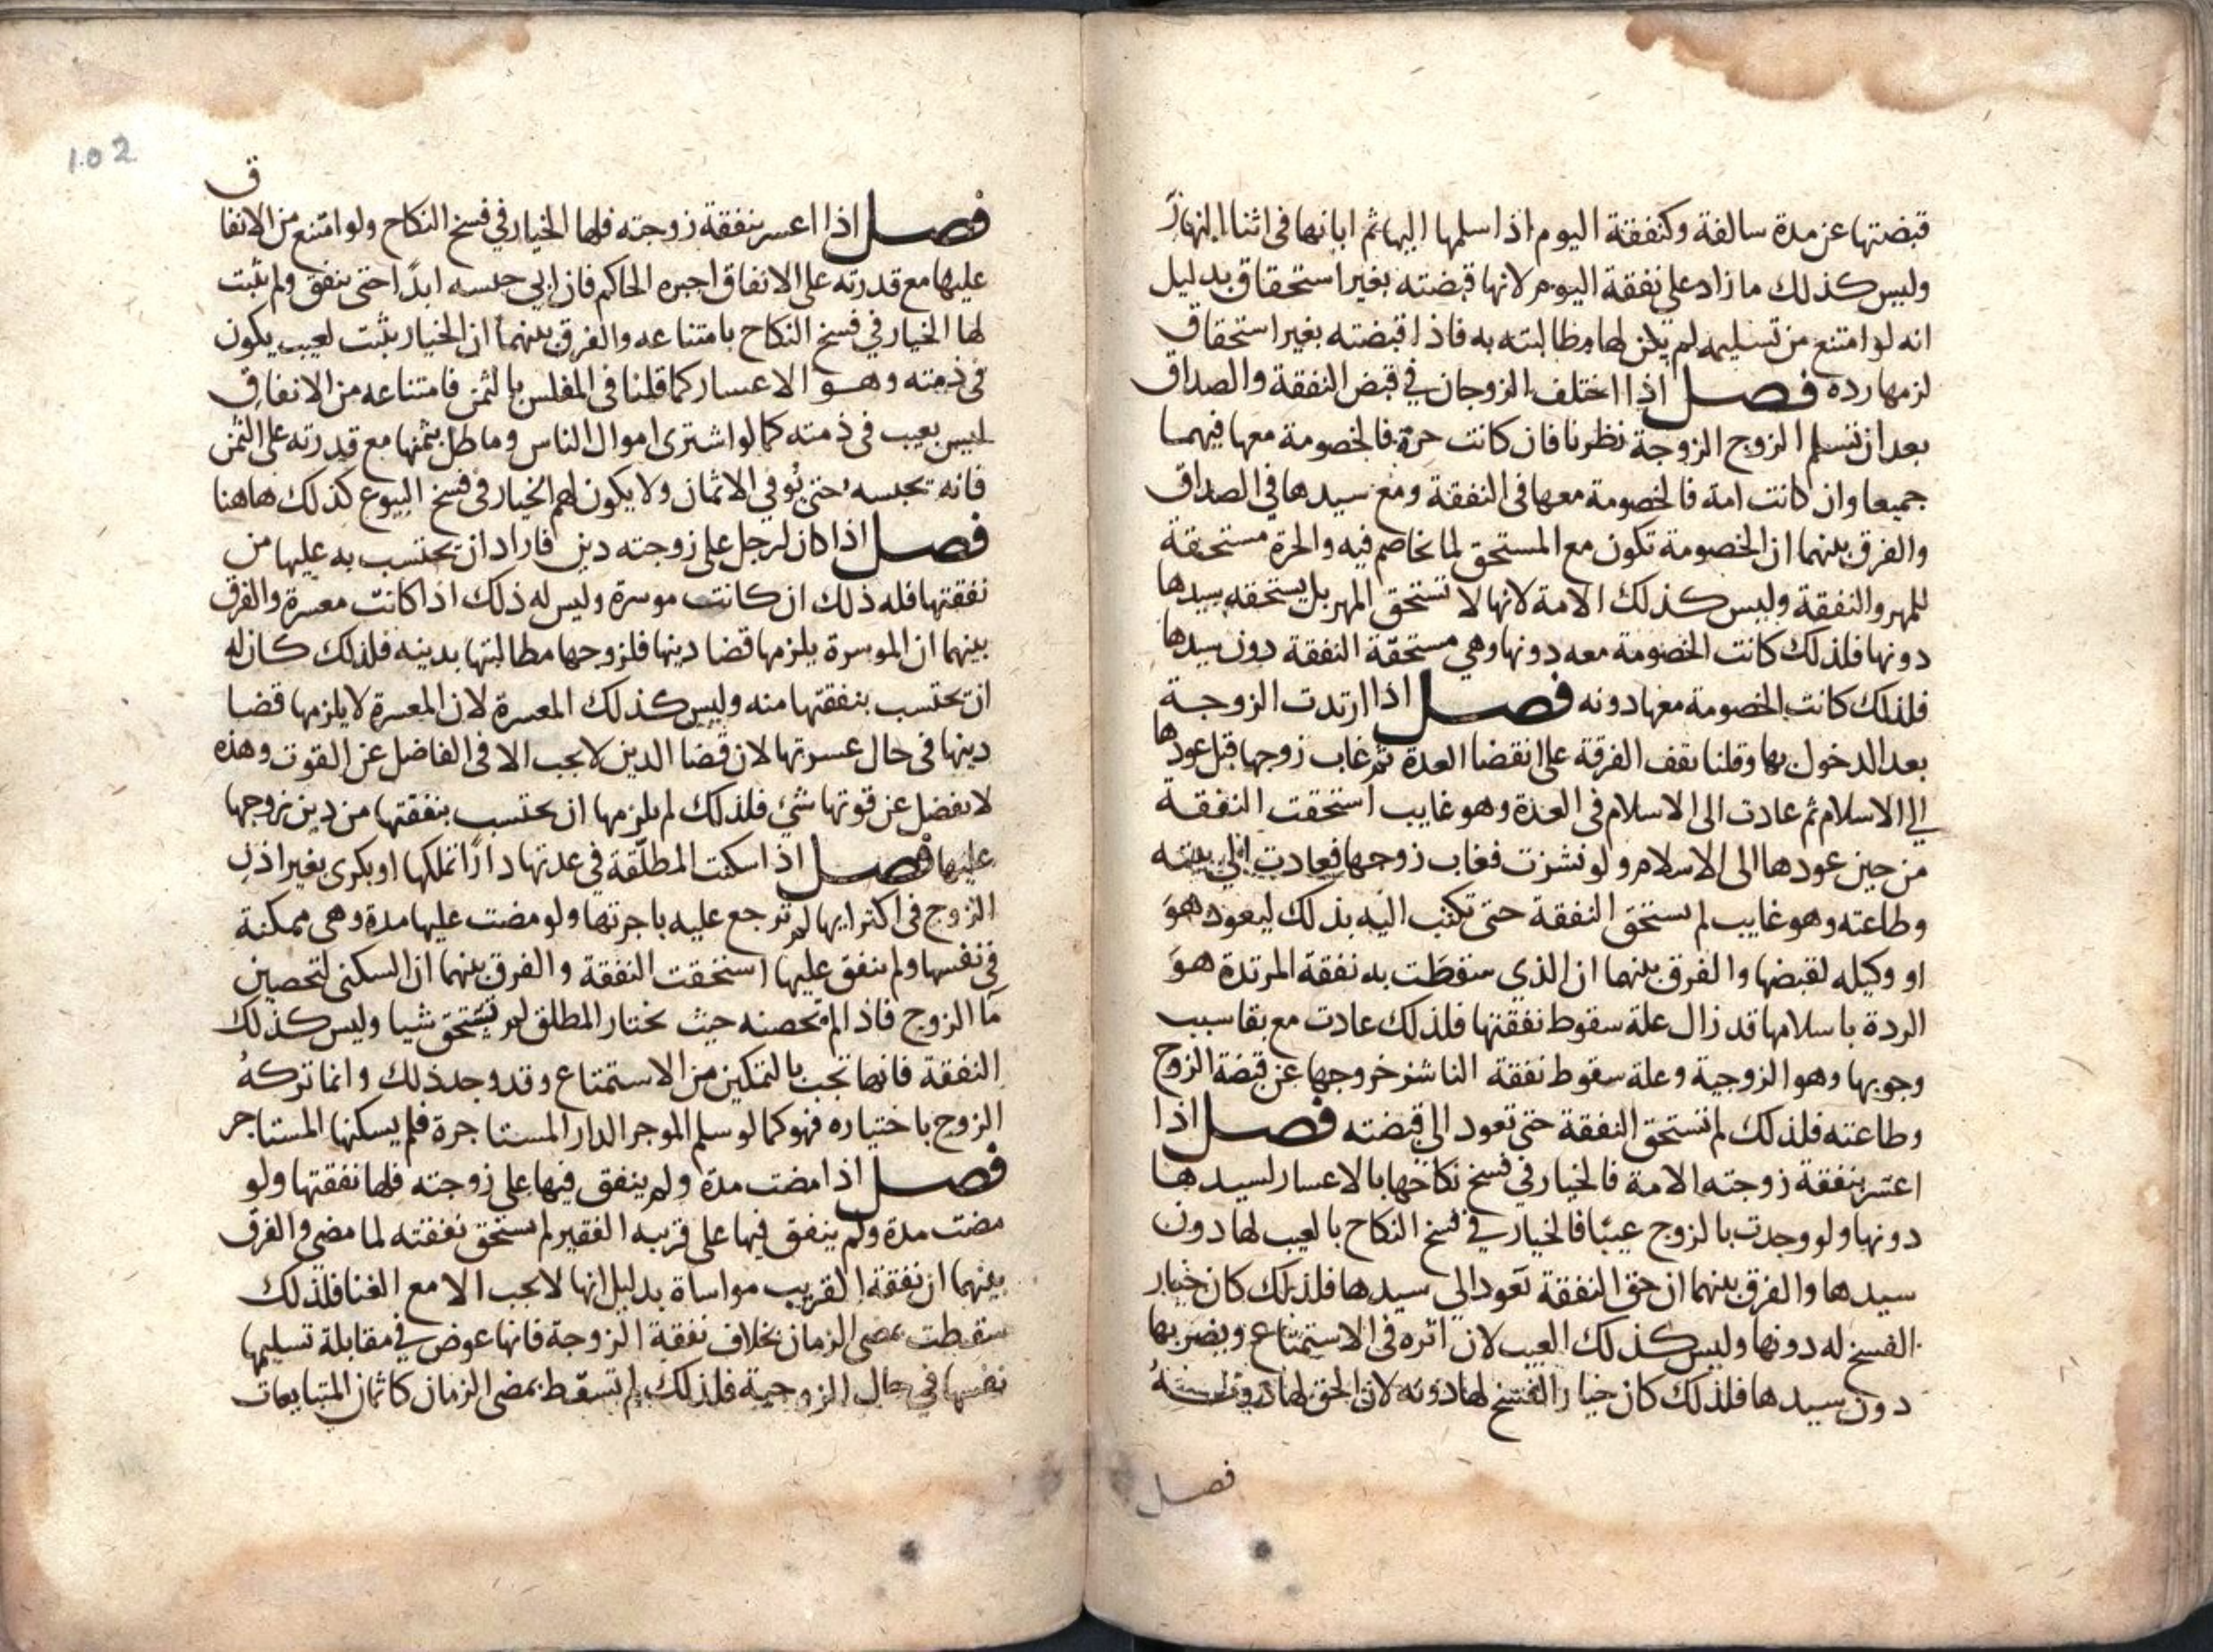 قبضتها عن مدة سالفة وكنفقة اليوم اذا سلمها اليها ثم ابانها فى اثنا النهار
وليس كذلك ما زاد على نفقة اليوم لانها قبضته بغير استحقاق بدليل
انه لو امتنع من تسليمه لم يكن لها مطالبته به فاذا قبضته بغير استحقاق
لزمها رده فصل اذا اختلف الزوجان في قبض النفقة والصداق
بعد ان تسلم الزوج الزوجة نظرنا فان كانت حرة فالخصومة معها فيهما
جميعا وان كانت امة فالخصومة معها فى النفقة ومع سيدها في الصداق
والفرق بينهما ان الخصومة تكون مع المستحق لما تخاصم فيه والحرة مستحقة
للمهر والنفقة وليس كذلك الامة لانها لا تستحق المهر بل يستحقه سيدها
دونها فلذلك كانت الخصومة معه دونها وهي مستحقة النفقة دون سيدها
فلذلك كانت الخصومة معها دونه فصل اذا ارتدت الزوجة
بعد الدخول بها وقلنا تقف الفرقة على انقضا العدة ثم غاب زوجها قبل عودها
الى الاسلام ثم عادت الى الاسلام فى العدة وهو غايب استحقت النفقة
من حين عودها الى الاسلام ولو نشزت فغاب زوجها فعادت الى بيته
وطاعته وهو غايب لم تستحق النفقة حتى تكتب اليه بذلك ليعود هو
او وكيله لقبضها والفرق بينهما ان الذي سقطت به نفقة المرتدة هو
الردة باسلامها قد زال علة سقوط نفقتها فلذلك عادت مع بقا سبب
وجوبها وهو الزوجية وعلة سقوط نفقة الناشز خروجها عن قبضة الزوج
وطاعته فلذلك لم تستحق النفقة حتى تعود الى قبضته فصل اذا
اعسر بنفقة زوجته الامة فالخيار في فسخ نكاحها بالاعسار لسيدها
دونها ولو وجدت بالزوج عيبًا فالخيار في فسخ النكاح بالعيب لها دون
سيدها والفرق بينهما ان حق النفقة تعود الى سيدها فلذلك كان خيار
الفسخ له دونها وليس كذلك العيب لان اثره فى الاستمتاع ويضر بها
دون سيدها فلذلك كان خيار الفسخ لها دونه لان الحق لها دون
فصل
102
ق
فصل اذا اعسر بنفقة زوجته فلها الخيار في فسخ النكاح ولو امتنع من الانفا
عليها مع قدرته على الانفاق اجبره الحاكم فان ابى حبسه ابدًا حتى ينفق ولم يثبت
لها الخيار في فسخ النكاح بامتناعه والفرق بينهما ان الخيار يثبت لعيب يكون
فى ذمته وهو الاعسار كما قلنا فى المفلس بالثمن فامتناعه من الانفاق
ليس بعيب فى ذمته كما لو اشترى اموال الناس وماطل بثمنها مع قدرته على الثمن
فانه تحبسه حتى يُوفي الاثمان ولا يكون لهم الخيار فى فسخ البيوع كذلك هاهنا
فصل اذا كان لرجل على زوجته دين فاراد ان يحتسب به عليها من
نفقتها فله ذلك ان كانت موسرة وليس له ذلك اذا كانت معسرة والفرق
بينهما ان الموسرة يلزمها قضا دينها فلزوجها مطالبتها بدينه فلذلك كان له
ان يحتسب بنفقتها منه وليس كذلك المعسرة لان المعسرة لا يلزمها قضا
دينها فى حال عسرتها لان قضا الدين لا يجب الا فى الفاضل عن القوت وهذه
لا يفضل عن قوتها شئ فلذلك لم يلزمها ان يحتسب بنفقتها من دين زوجها
عليها فصل اذا سكنت المطلقة فى عدتها دارًا تملكها او بكرى بغير اذن
الزوج فى اكترايها لم ترجع عليه باجرتها ولو مضت عليها مدة وهى ممكنة
فى نفسها ولم ينفق عليها استحقت النفقة والفرق بينهما ان السكنى لتحصين
ما الزوج فاذا لم تحصنه حيث يختار المطلق لم تستحق شيا وليس كذلك
النفقة فانها تجب بالتمكين من الاستمتاع وقد وجد ذلك وانما تركه
الزوج باختياره فهو كما لو سلم الموجر الدار المستاجرة فلم يسكنها المستاجر
فصل اذا مضت مدة ولم ينفق فيها على زوجته فلها نفقتها ولو
مضت مدة ولم ينفق فيها على قريبه الفقير لم يستحق نفقته لما مضى والفرق
بينهما ان نفقة القريب مواساة بدليل انها لا يجب الا مع الغنا فلذلك
سقطت بمضى الزمان بخلاف نفقة الزوجة فانها عوض في مقابلة تسليمها
نفسها في حال الزوجية فلذلك لم تسقط بمضى الزمان كاثمان المتبايعات